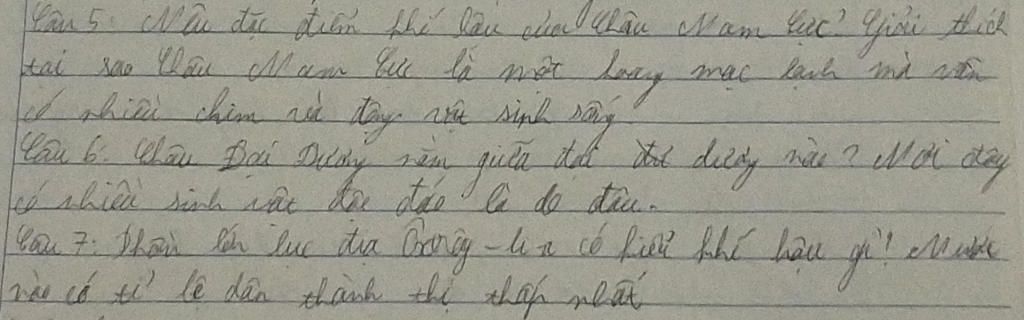 Câu 5: Nêu đặc điểm khí hậu của Châu Nam Cực? Giải thích
tại sao Châu Nam Cực là một hoang mạc lạnh mà vẫn
có nhiều chim và động vật sinh sống.
Câu 6: Châu Đại Dương nằm giữa đại dương nào? Nơi đây
có nhiều sinh vật độc đáo là do đâu.
Câu 7: Phần lớn lục địa Ôxtrây-li-a có kiểu khí hậu gì? Nước
nào có tỉ lệ dân thành thị thấp nhất